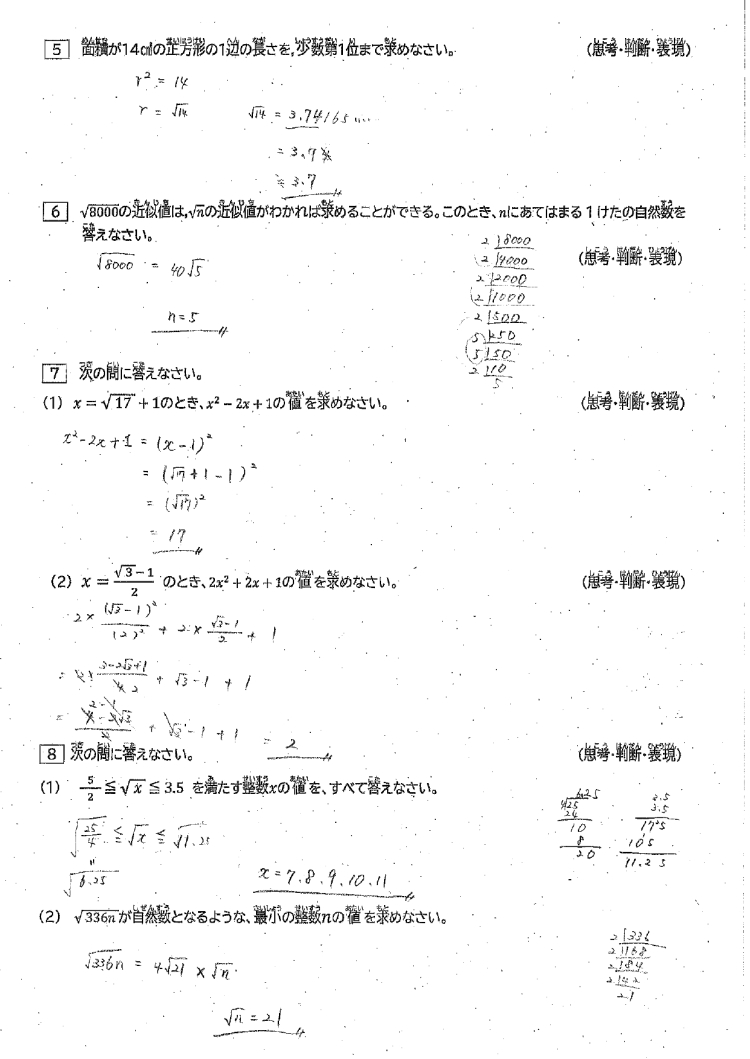 5 面積が14㎠の正方形の1辺の長さを,少数第1位まで求めなさい。 (思考・判断・表現)
r² = 14
r = √14 √14 = 3.74165....
= 3.74
≒ 3.7
6 √8000の近似値は,√nの近似値がわかれば求めることができる。このとき、nにあてはまる1けたの自然数を
答えなさい。 (思考・判断・表現)
√8000 = 40√5
n=5
2 8000
2 4000
2 2000
2 1000
2 500
5 250
5 50
2 10
5
7 次の問に答えなさい。
(1) x = √17 + 1のとき、x² − 2x + 1の値を求めなさい。 (思考・判断・表現)
x²-2x+1 = (x-1)²
= (√17+1-1)²
= (√17)²
= 17
(2) x = (√3−1)/2 のとき、2x² + 2x + 1の値を求めなさい。 (思考・判断・表現)
2× (√3-1)²/(2)² + 2× (√3-1)/2 + 1
= 2× (3-2√3+1)/4 2 + √3-1 + 1
= + √3-1+1 = 2
8 次の問に答えなさい。 (思考・判断・表現)
(1) 5/2 ≦ √x ≦ 3.5 を満たす整数xの値を、すべて答えなさい。
√25/4 ≦ √x ≦ √11.25
=
√6.25
x = 7.8.9.10.11
6.25
4 25
24
10
8
20
3.5
3.5
175
105
11.25
(2) √336nが自然数となるような、最小の整数nの値を求めなさい。
√336n = 4√21 × √n
√n = 21
2 336
2 168
2 84
2 42
21